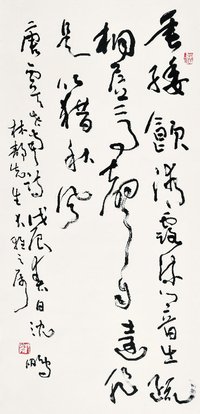 垂緌飲清露流響出疏
桐居高聲自遠非
是藉秋風
唐虞世南詩 戊辰春日沈鵬
林 先生大雅之屬